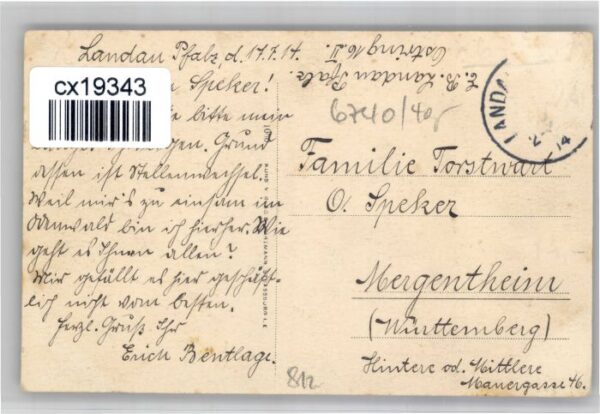 Landau Pfalz, d. 17.7.14.
Speker!
cx19343
bitte mein
Grund
dessen ist Stellenwechsel.
Weil mir's zu einsam im
bin ich hierher. Wie
geht es Ihnen allen?
Mir gefällt es hier geschäft-
lich nicht vom besten.
Herzl. Gruß Ihr
Erich Bentlage.
E. B. Landau Pfalz.
Ostring 16 II.
6740/40
LANDA
14
Familie Forstwart
O. Speker
Mergentheim
(Württemberg)
Hintere od. Mittlere
Mauergasse 46.
812